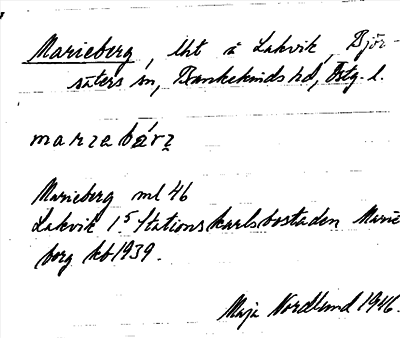 Marieberg, lht å Lakvik, Björ-
säters sn, Bankekinds hd, Östg. l.
marɩabárɩ̯
Marieberg ml 46
Lakvik 1:5 Stationskarlsbostaden Marie
berg kb 1939.
Maja Nordlund 1946.